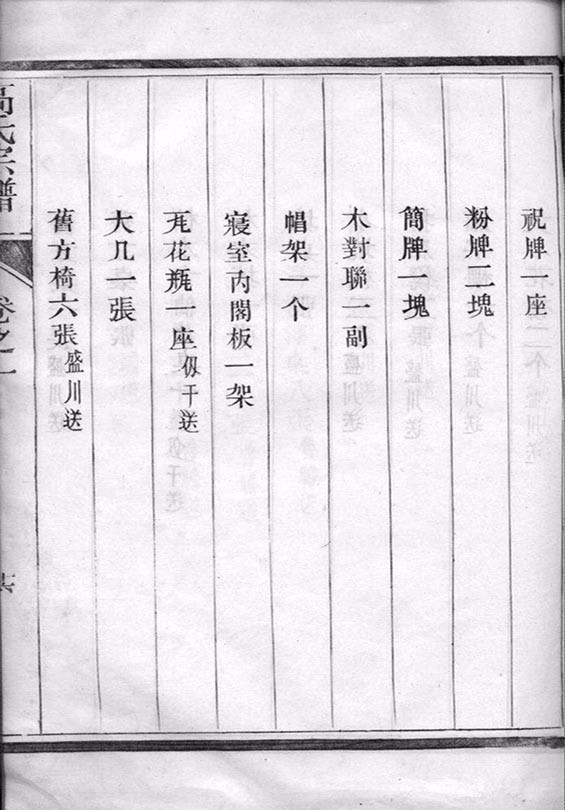 祝牌一座
粉牌二塊
簡牌一塊
木對聯一副
帽架一个
寢室內閣板一架
瓦花瓶一座 似于送
大几一張
舊方椅六張 盛川送
高氏宗譜
卷之一